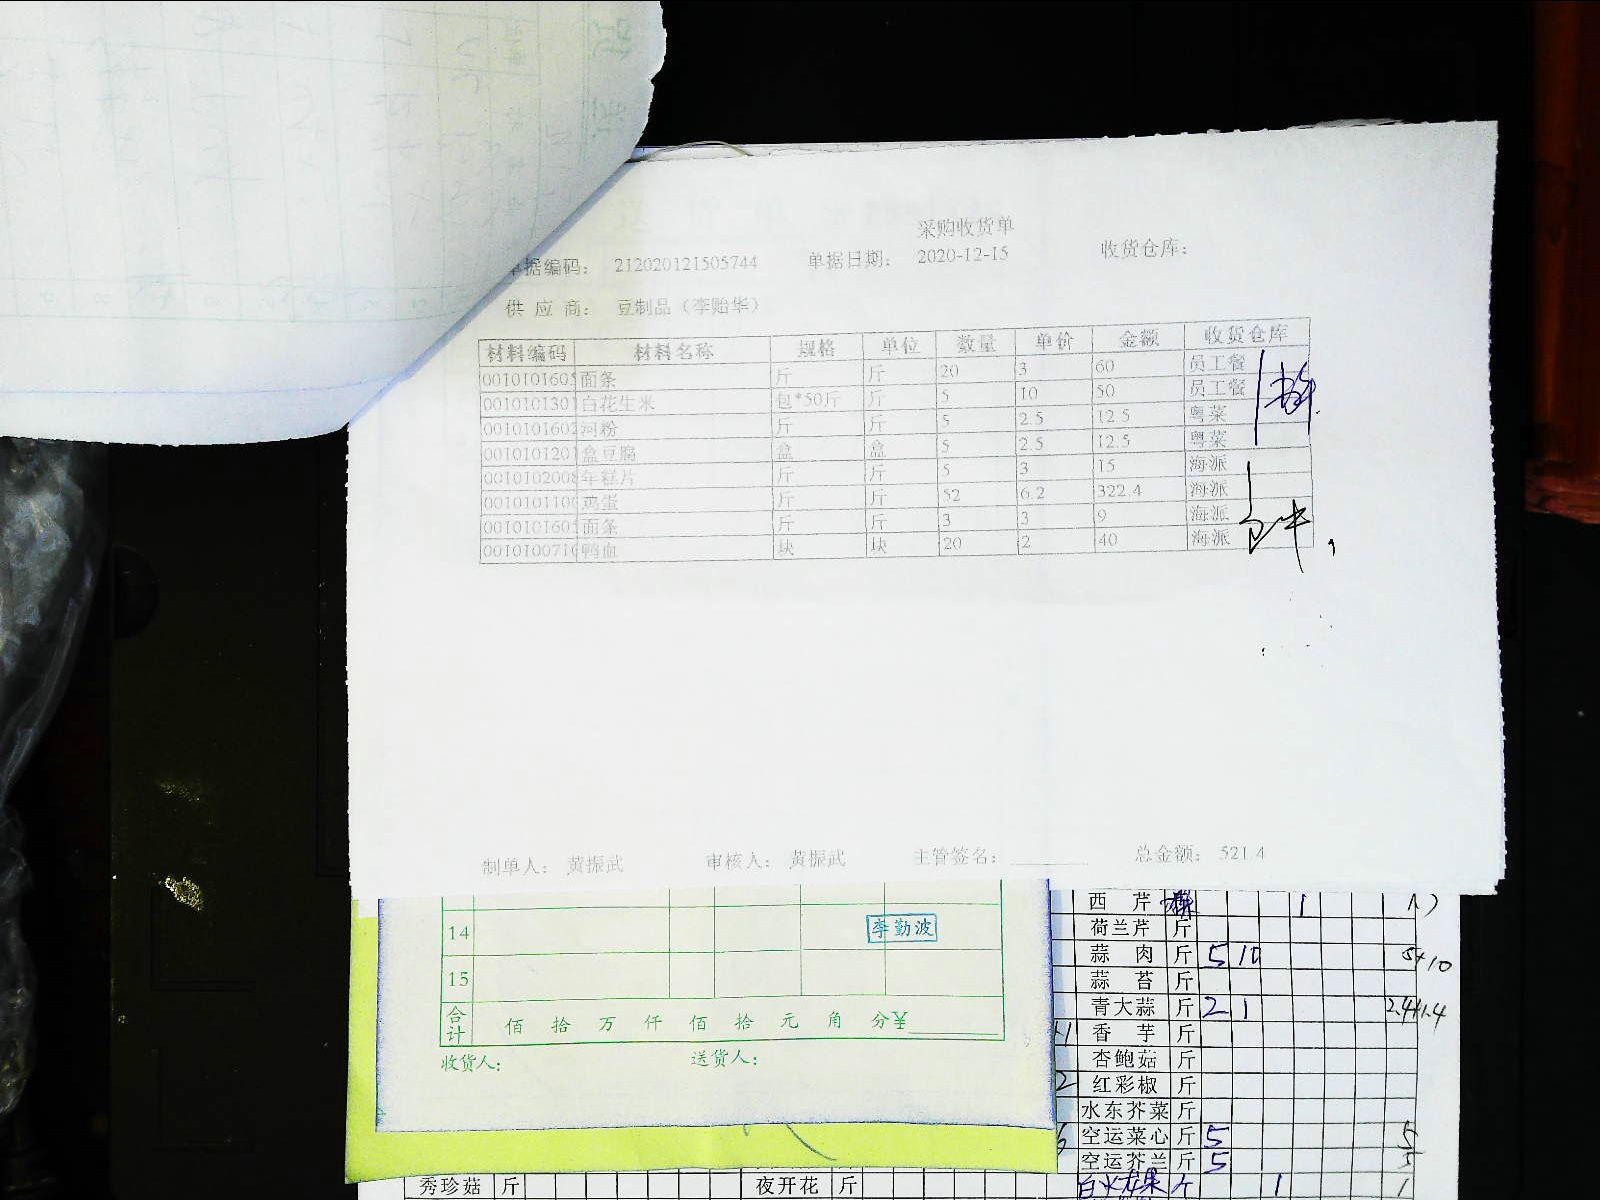 采购收货单
单据编码： 212020121505744 单据日期： 2020-12-15 收货仓库：
供 应 商： 豆制品（李贻华）
材料编码 材料名称 规格 单位 数量 单价 金额 收货仓库
001010160 面条 斤 斤 20 3 60 员工餐
001010130 白花生米 包*50斤 斤 5 10 50 员工餐
001010160 河粉 斤 斤 5 2.5 12.5 粤菜
001010120 盒豆腐 盒 盒 5 2.5 12.5 粤菜
001010200 年糕片 斤 斤 5 3 15 海派
001010110 鸡蛋 斤 斤 52 6.2 322.4 海派
001010160 面条 斤 斤 3 3 9 海派
001010071 鸭血 块 块 20 2 40 海派
制单人： 黄振武 审核人： 黄振武 主管签名： 总金额： 521.4
14 李勤波
15
合计 佰 拾 万 仟 佰 拾 元 角 分¥
收货人： 送货人：
西 芹 1
荷兰芹 斤
蒜 肉 斤 5 10 5+10
蒜 苔 斤
青大蒜 斤 2 1 2.4+1.4
香 芋 斤
杏鲍菇 斤
红彩椒 斤
水东芥菜 斤
空运菜心 斤 5 5
空运芥兰 斤 5 5
秀珍菇 斤 夜开花 斤 白火龙果 个 1 1